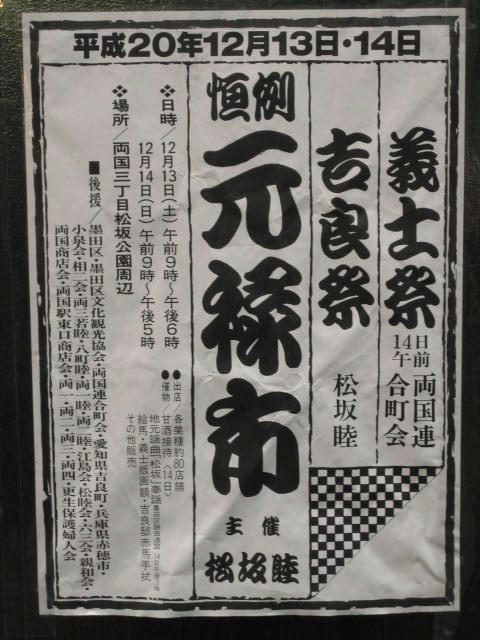 平成20年12月13日・14日
義士祭
14日午前
両国連合町会
吉良祭
松坂睦
恒例
元禄市
主催
松坂睦
❖日時/12月13日(土)午前9時〜午後6時
12月14日(日)午前9時〜午後5時
❖場所/両国三丁目松坂公園周辺
●出店 各業種約80店舗
●催物 甘酒接待〈14日〉
地元謡曲「松坂」奉謡
絵馬・義士版画額・吉良邸赤馬手拭
その他販売
■後援/墨田区・墨田区文化観光協会・両国連合町会・愛知県吉良町・兵庫県赤穂市・
小泉会・相二会・両三若睦・八町睦・両一睦・両二睦・江島会・松睦会・六三会・親和会・
両国商店会・両国駅東口商店会・両一・両二・両三・両四・更生保護婦人会